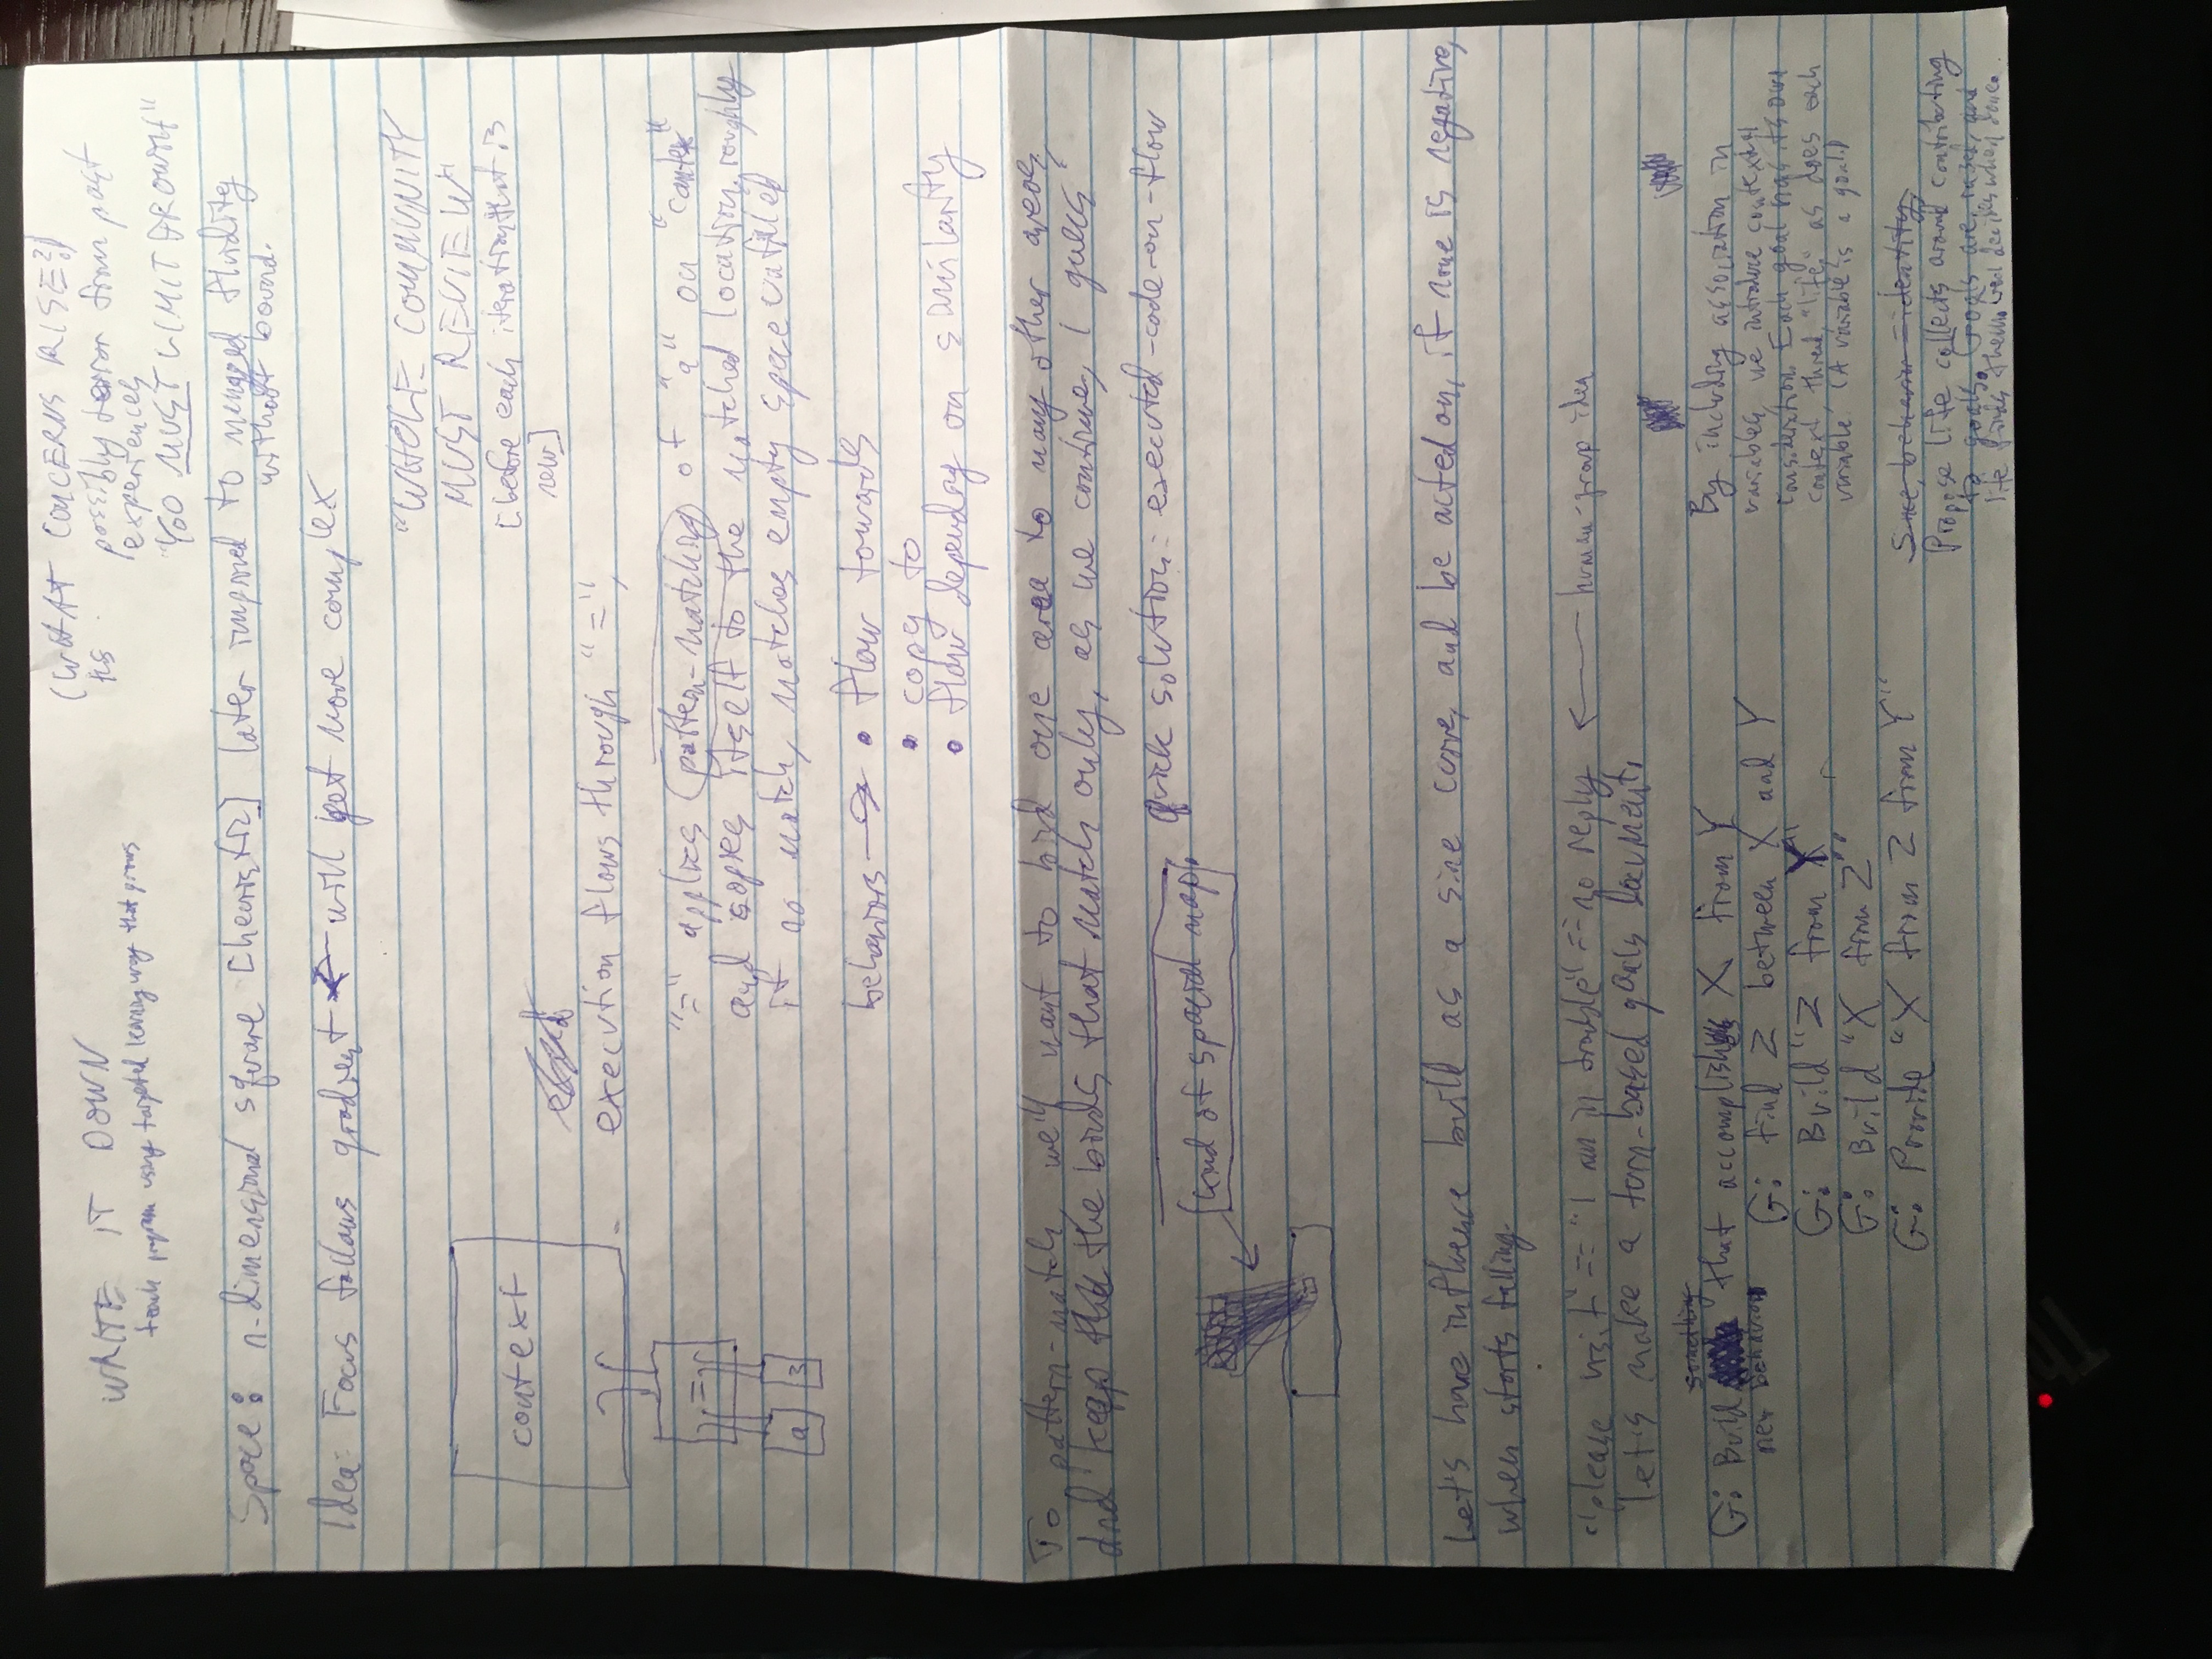 WRITE IT DOWN
teach program using targeted learning way that grows
(WHAT CONCERNS RISE?)
possibly terror from past
experiences
"YOO MUST LIMIT GROWTH"
Space: n-dimensional square [heuristic] later improved to fluidity
without bound.
Idea: Focus follows gradient ← will get more complex
"WHOLE COMMUNITY
MUST REVIEW"
[before each iteration that is
new]
context
execution flows through "=",
=
a
3
"=" applies pattern-matching of "a" on "context"
and copies itself to the matched location, roughly
if no match, matches empty space unfilled
behaviors → • flow towards
• copy to
• flow depending on similarity
To pattern-match, we'll want to bind one area to many other areas,
and keep the the binds that match only, as we continue, I guess
quick solution: executed-code-on-flow
kind of spacial map
Let's have influence build as a sine curve, and be acted on, if none is negative,
when starts falling.
"please visit" == "I am in trouble" == no reply ← human-group idea
let's make a turn-based goals document.
something
G: Build that accomplishes X from Y
new behavior
G: find Z between X and Y
G: Build "Z from Y"
G: Build "X from Z"
G: Provide "X from Z from Y"
By including association in
variables, we introduce contextual
consideration. Each goal has its own
context, thread, "life," as does each
variable. (A variable is a goal.)
Since, behavior = identity,
Propose life collects around contributing
to goals. Goals are raised, and
life finds them and decides when done.